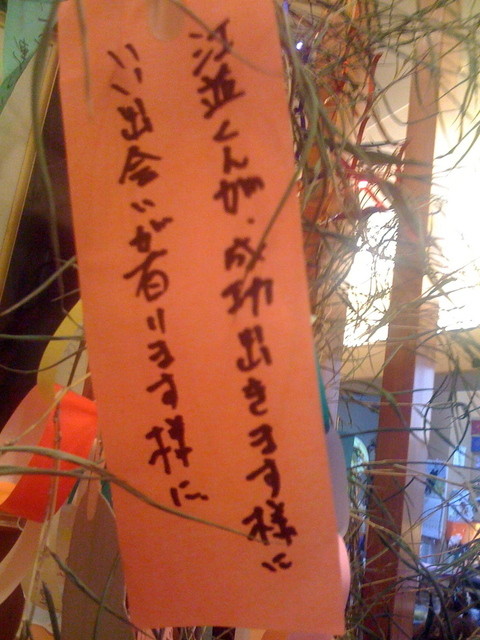 江並くんが、成功出きます様に
いい出会いが有ります様に